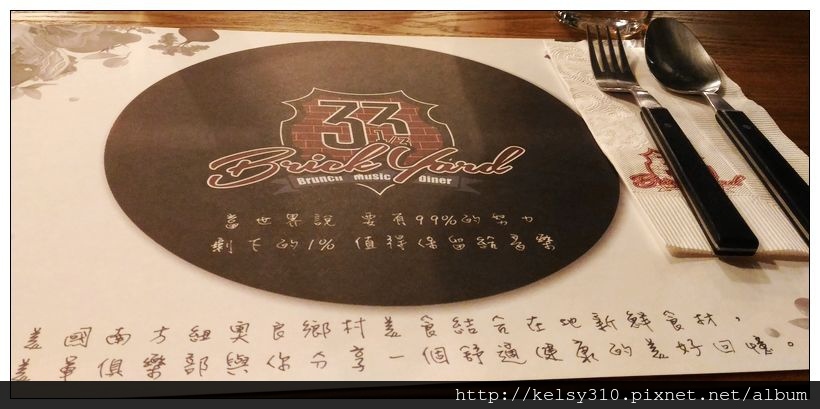 33
1/2
Brick Yard
Brunch Music Diner
當世界說 要有99%的努力
剩下的1% 值得保留給音樂
Brick Yard
美國南方紐奧良鄉村美食結合在地新鮮食材，
美軍俱樂部與你分享一個舒適懷裏的美好回憶。
http://kelsy310.pixnet.net/album